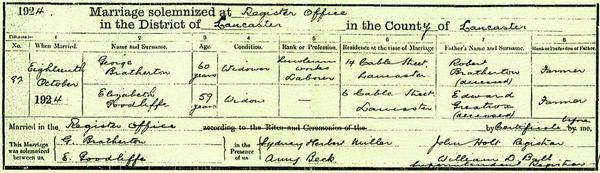 1924. Marriage solemnized at Register Office
in the District of Lancaster in the County of Lancaster
Columns:— 1 2 3 4 5 6 7 8
No. When Married. Name and Surname. Age. Condition. Rank or Profession. Residence at the time of Marriage. Father's Name and Surname. Rank or Profession of Father.
87 Eighteenth October 1924 George Bratherton 60 years Widower Linoleum works Labourer 14 Cable Street, Lancaster Robert Bratherton (deceased) Farmer
Elizabeth Goodliffe 59 years Widow — 6 Cable Street, Lancaster Edward (deceased) Farmer
Married in the Register Office according to the Rites and Ceremonies of the by Certificate before by me,
This Marriage was solemnized between us, G. Bratherton
E. Goodliffe
in the Presence of us Sydney Herbert Miller
Amy Beck
John Holt Registrar
William D. Ball
Superintendent Registrar